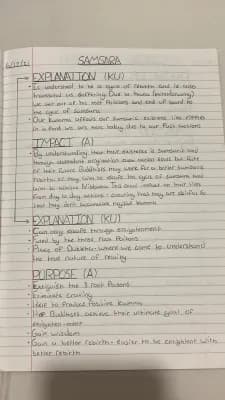 SAMSARA
EXPLANATION (KU)
• Is understood to be a cycle of rebirth and is often
translated as suffering. Due to
we are out of the root Poisons and are bound to
the cycle of Samsara
• Our Kamma affects our Samsaric existence like ripples
in a pond we are here today due to our Past actions
IMPACT (A)
• By understanding that their existence is Samsaric and
through dependent origination
of their Buddhists may work for a better Samsaric
may aim to escape the cycle of Samsara and
aim to achieve Nibbana. This could impact on their lives
from day to day actions - ensuring that they are skilful so
that they don't accumulate negative kamma
EXPLANATION (KU)
• Can only escape through enlightenment
• Fueled by the three root Poisons
• Place of Dukkha - where we come to understand
the true nature of reality
PURPOSE (A)
• Extinguish the 3 root Poisons
• Eliminate craving
• Help to Produce Positive kamma
• Help Buddhists achieve their ultimate goal of
enlightenment
• Gain wisdom
• Gain a better rebirth - easier to be enlightened with
better rebirth